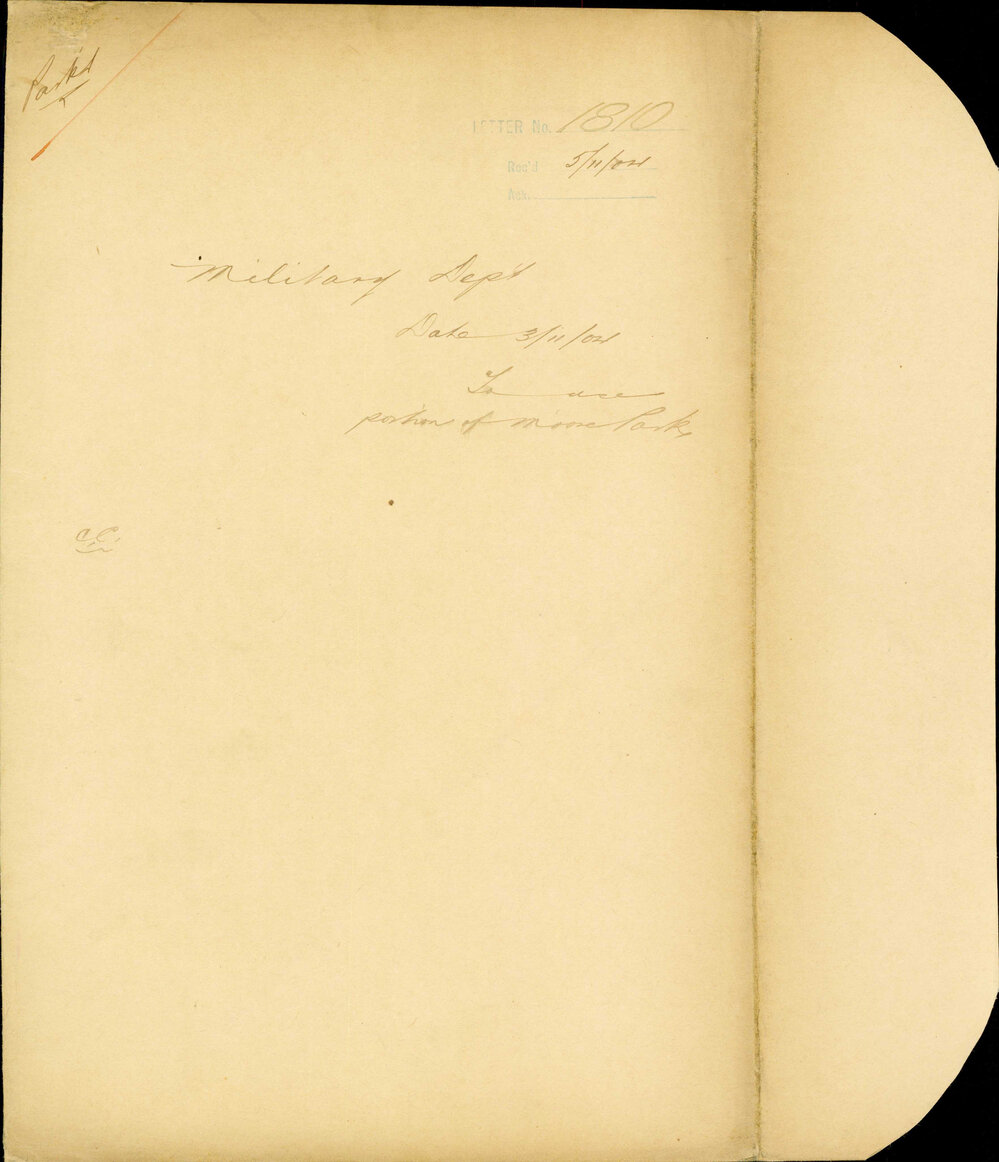 Parks
LETTER No. 1810
Rec'd 5/11/04
Ack.
Military Dep't
Date 3/11/04
To use
portion of Moore Park